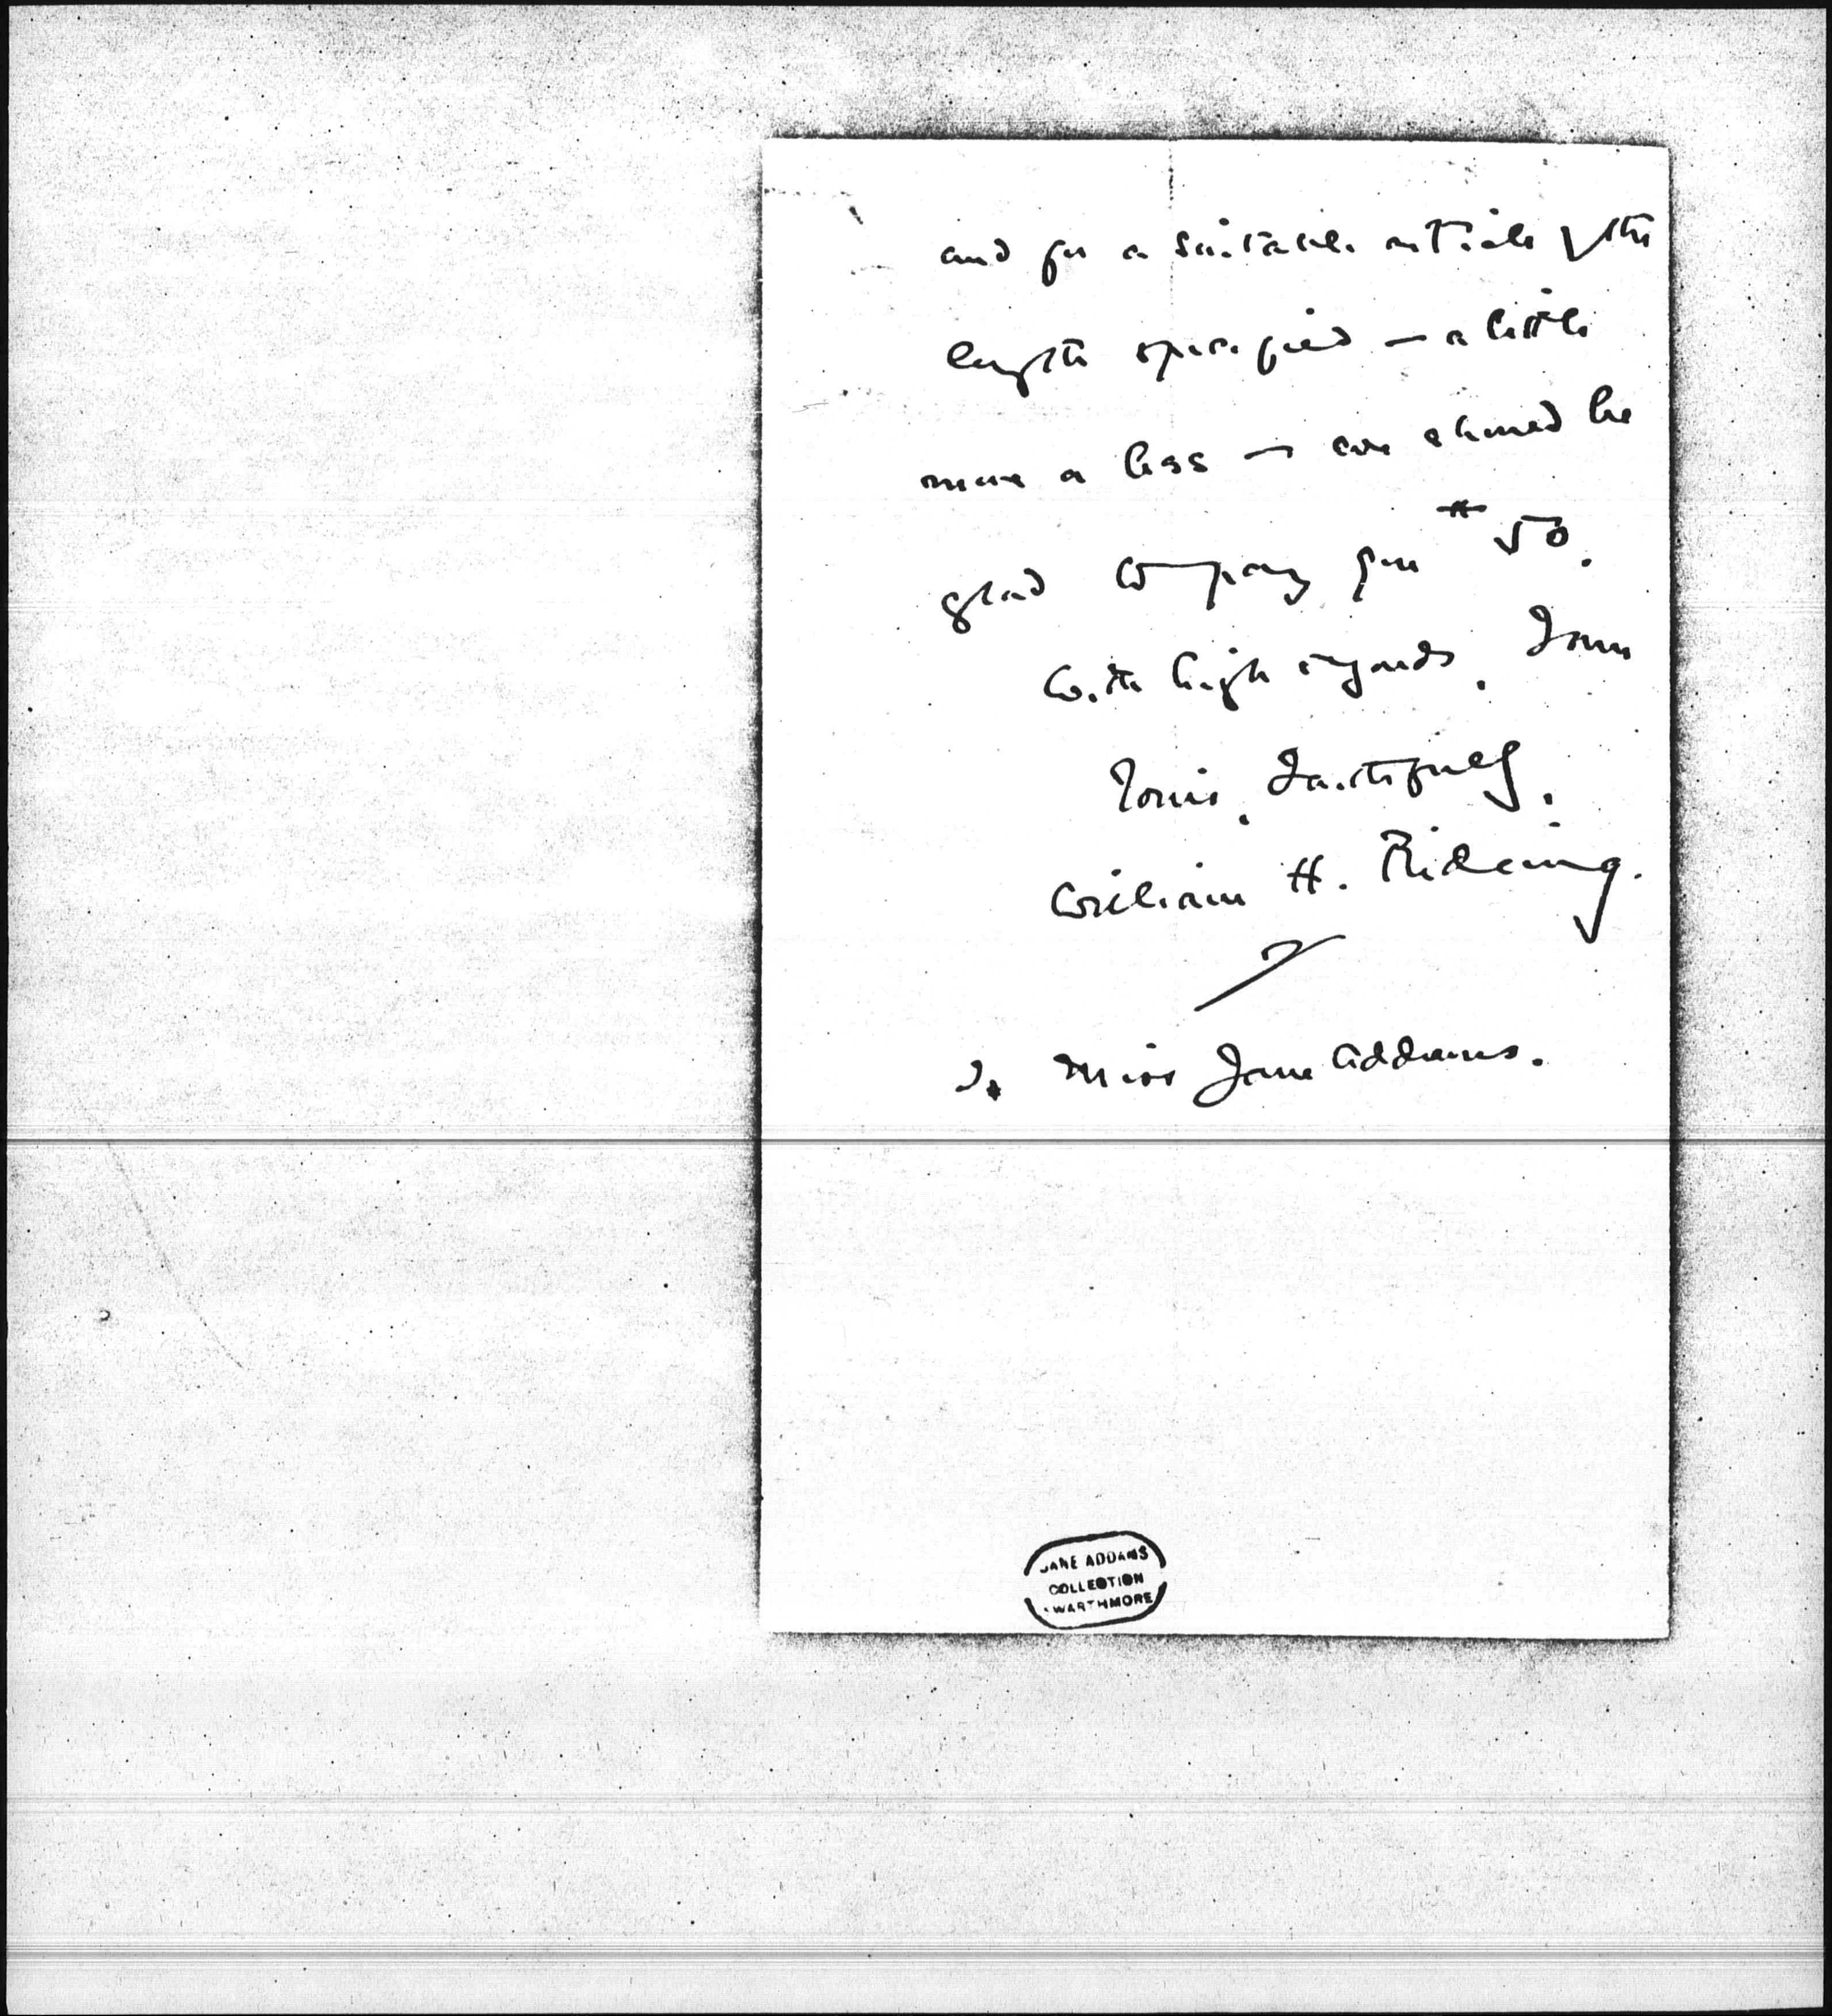 and for a suitable article of the
length specified — a little
more or less — we should be
glad to pay you $50.
With high regards, I am
Yours, Faithfully,
William H. Rideing.
To Miss Jane Addams.
JANE ADDAMS
COLLECTION
SWARTHMORE